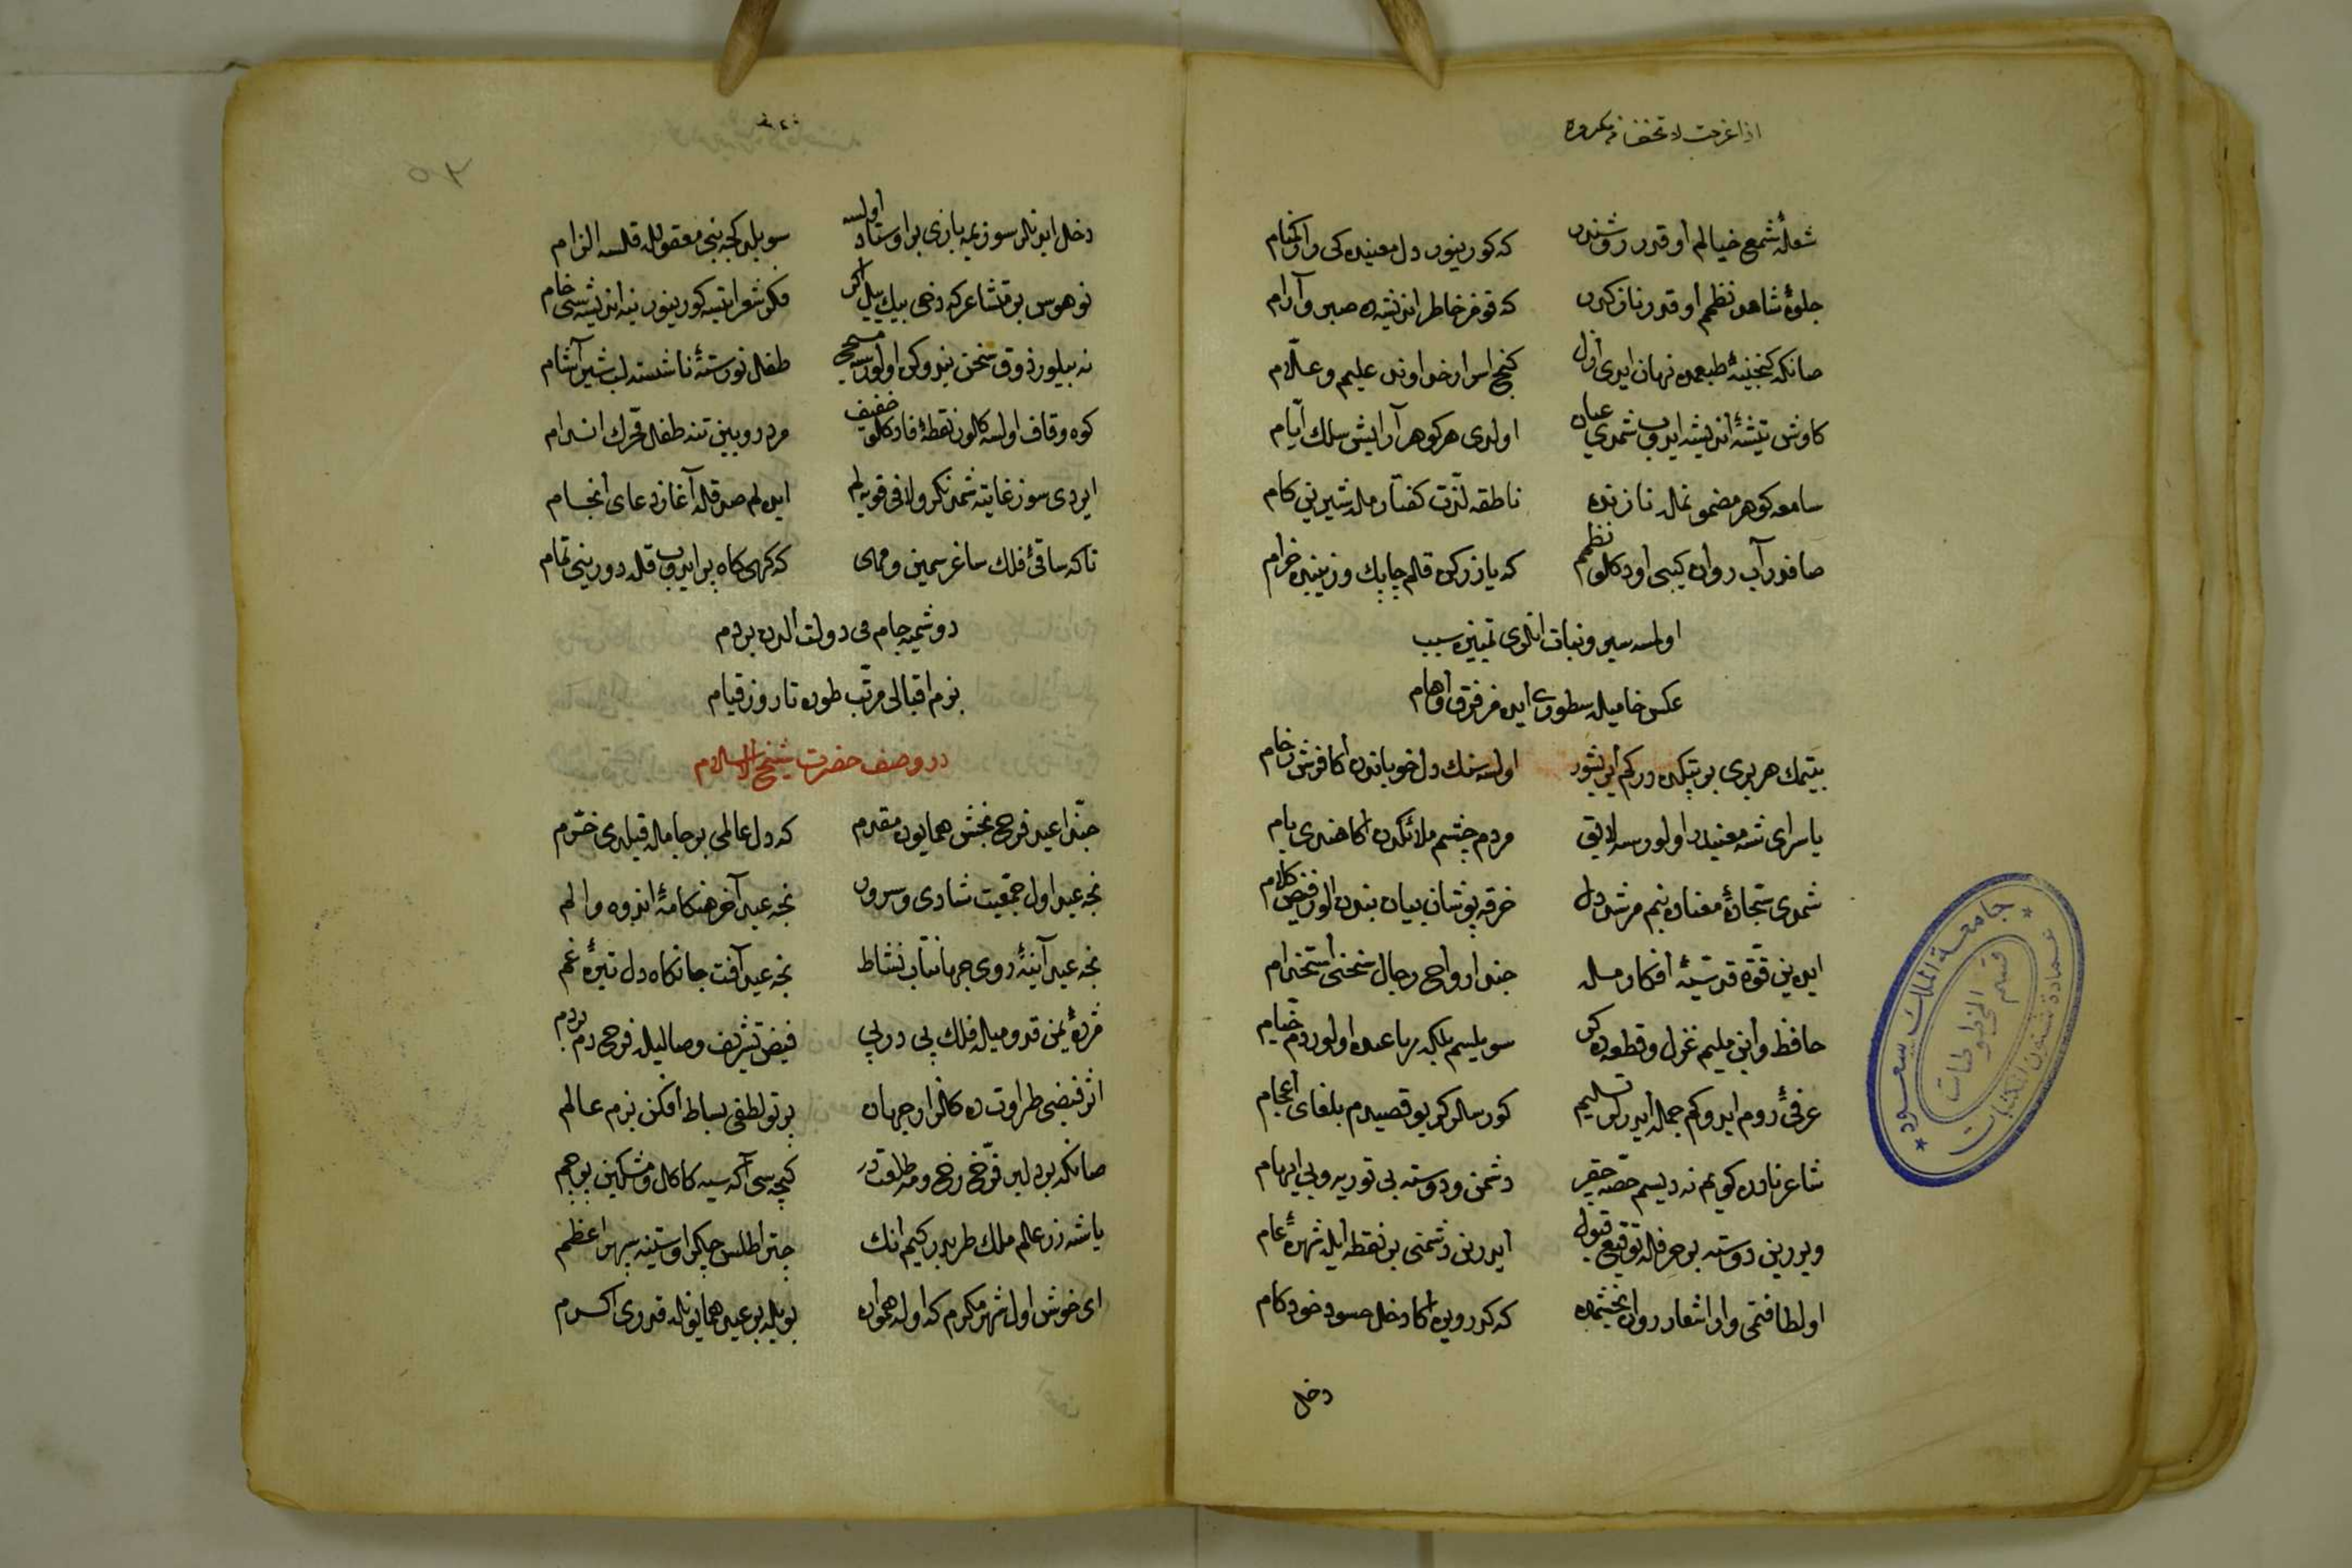 شعلهٔ شمع خیالم او قدر روشندر که کورینور دل معنیده کی راز کتام
جلوهٔ شاهد نظمم او قدر نازکدر که قومز خاطر اندیشه ده صبر و آرام
صانکه کنجینهٔ طبعمده نهان ایدی ازل کنج اسرار خداوند علیم و علّام
کاوش تیشهٔ اندیشه ایدوب شمدی عیان اولدی هر کوهر آرایش سلك ایّام
سامعه کوهر مضمونمله نازنده ناطقه لذّت کفتارمله شیرین کام
صافدر آب روان کیبی اودکلو نظمم که یازرکن قلم چابك و زیبنده خرام
اولسه سیر و نبات انلری تمییزه سبب
عکس خامیله سطوری ایده مز فرق اوهام
بیتمك هر بری بر بتکده در کم ایریشور اولسه سنك دل خوباندن اکا فرش رخام
یا سرای شه معنیدر اولورسه لایق مردم چشم ملائکدن اکا خشدی بام
شمدی سجّادهٔ معناده بنم مرشد دل خرقه پوشان بیان بندن الور فیض کلام
ایده ین قوّة قدسیّهٔ افکارمله جند ارواح رجال سخنی استخدام
حافظ وابن ملیم غزل و قطعه ده کر سویلیسم بلکه رباعیده اولوردم خیّام
عرفئ روم ایدوکم جمله ایدرلر تسلیم کورسه لر کر بو قصیدم بلغای اعجام
شاعر نادره کویم نه دیسم حقّه حقیر دشمن و دوسته بی توریه و بی ایهام
ویررین دوسته بر حرفله توقیع قبول ایدرین دشمنی بر نقطه ایله شهرهٔ عام
او لطافتمی وار اشعار روان بخشمده که کدر ویره اکا دخل حسود خودکام
دخل
دخل ایدنلر سوزیمه یازی بر اوستاد اولسه سویلدکجه بنی معقولله قلسه الزام
نو هوس بر قتشاعر که دخی بیك ییل اکر فکر شعر ایتسه کورینور ینه اندیشه سی خام
نه بیلور ذوق سخن نیدوکن اولورسه مسیح طفل نورستهٔ ناشسته لب شیر آشام
کوه و قاف اولسه کالور نقطهٔ فادکلو خفیف
ایردی سوز غایته شمدنکرو لافی قویه لم ایده لم صدقله آغاز دعای انجام
تا که ساقئ فلك ساغر سیمین و مهی که تهی کاه پر ایدوب قله دورینی تمام
دوشمیه جام می دولت الدن بر دم
بزم اقبالی مرتّب طوره تا روز قیام
در وصف حضرت شیخ الاسلام
حبّذا عید فرح بخش همایون مقدم که دل عالمی بر جامله قیلدی خرّم
نجه عید اول جمعیت شادی و سرور نجه عید آخر هنکامهٔ اندوه و الم
نجه عید آینهٔ روی جهانتاب نشاط نجه عید آفت جانکاه دل تیرهٔ غم
مژدهٔ یمن قدومیله فلك پی در پی فیض تشریف وصالیله فرح دم بر دم
اثر فیضی طراوت ده کلزار جهان پرتو لطفی بساط افکن بزم عالم
صانکه بر دلبر فرّخ رخ و مه طلعتدر کیجه سی آکه سیه کاکل و مشکین پرچم
یا شه زر علم ملك طربدر کیم انك چتر اطلس چکر اوستینه سپهر اعظم
ای خوش اول شهر مکرم که اوله همواره بویله بر عید همایونله قدری اکرم
جامعة الملك سعود
عمادة شئون المكتبات
قسم المخطوطات